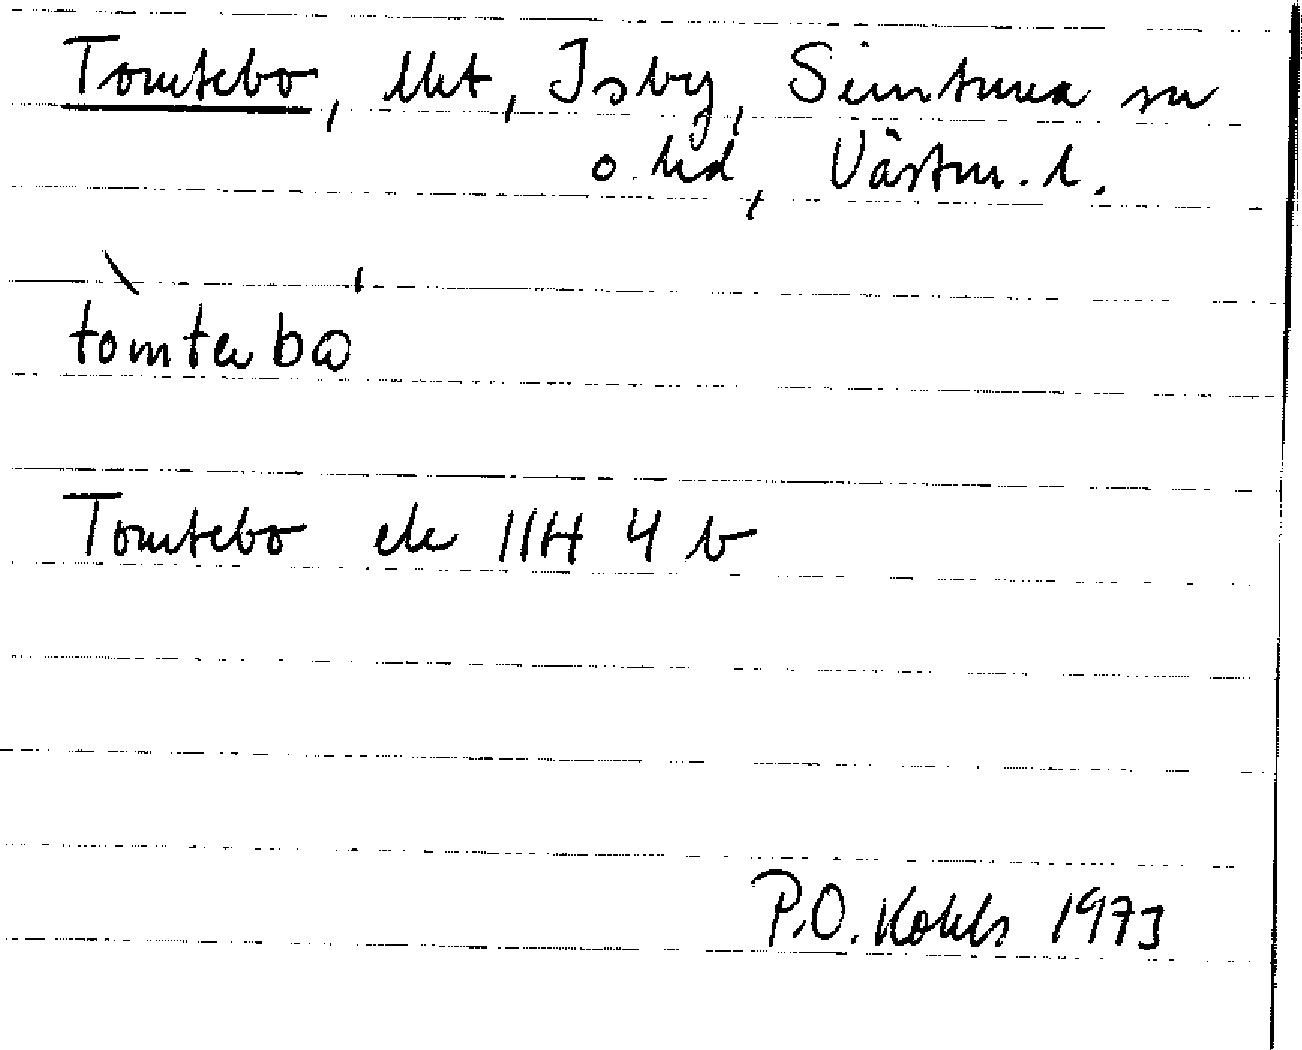 Tomtebo, lht, Isby, Simtuna sn
o. hd, Västm. l.
tòmtebо̍
Tomtebo ek 11H 4 b
P.O. Kohls 1973